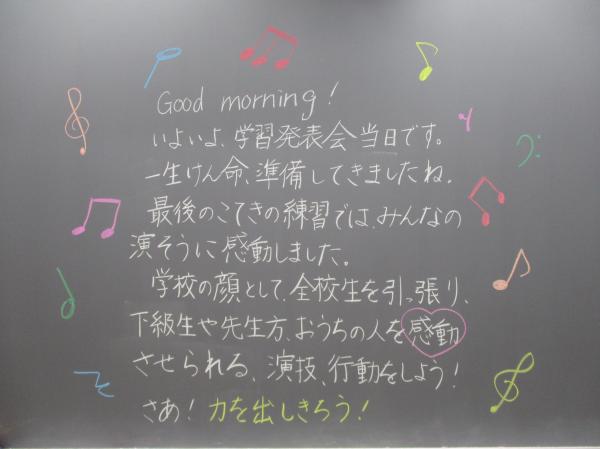 Good morning!
いよいよ、学習発表会当日です。
一生けん命、準備してきましたね。
最後のこてきの練習では、みんなの
演そうに感動しました。
学校の顔として、全校生を引っ張り、
下級生や先生方、おうちの人を感動
させられる、演技、行動をしよう!
さあ!力を出しきろう!